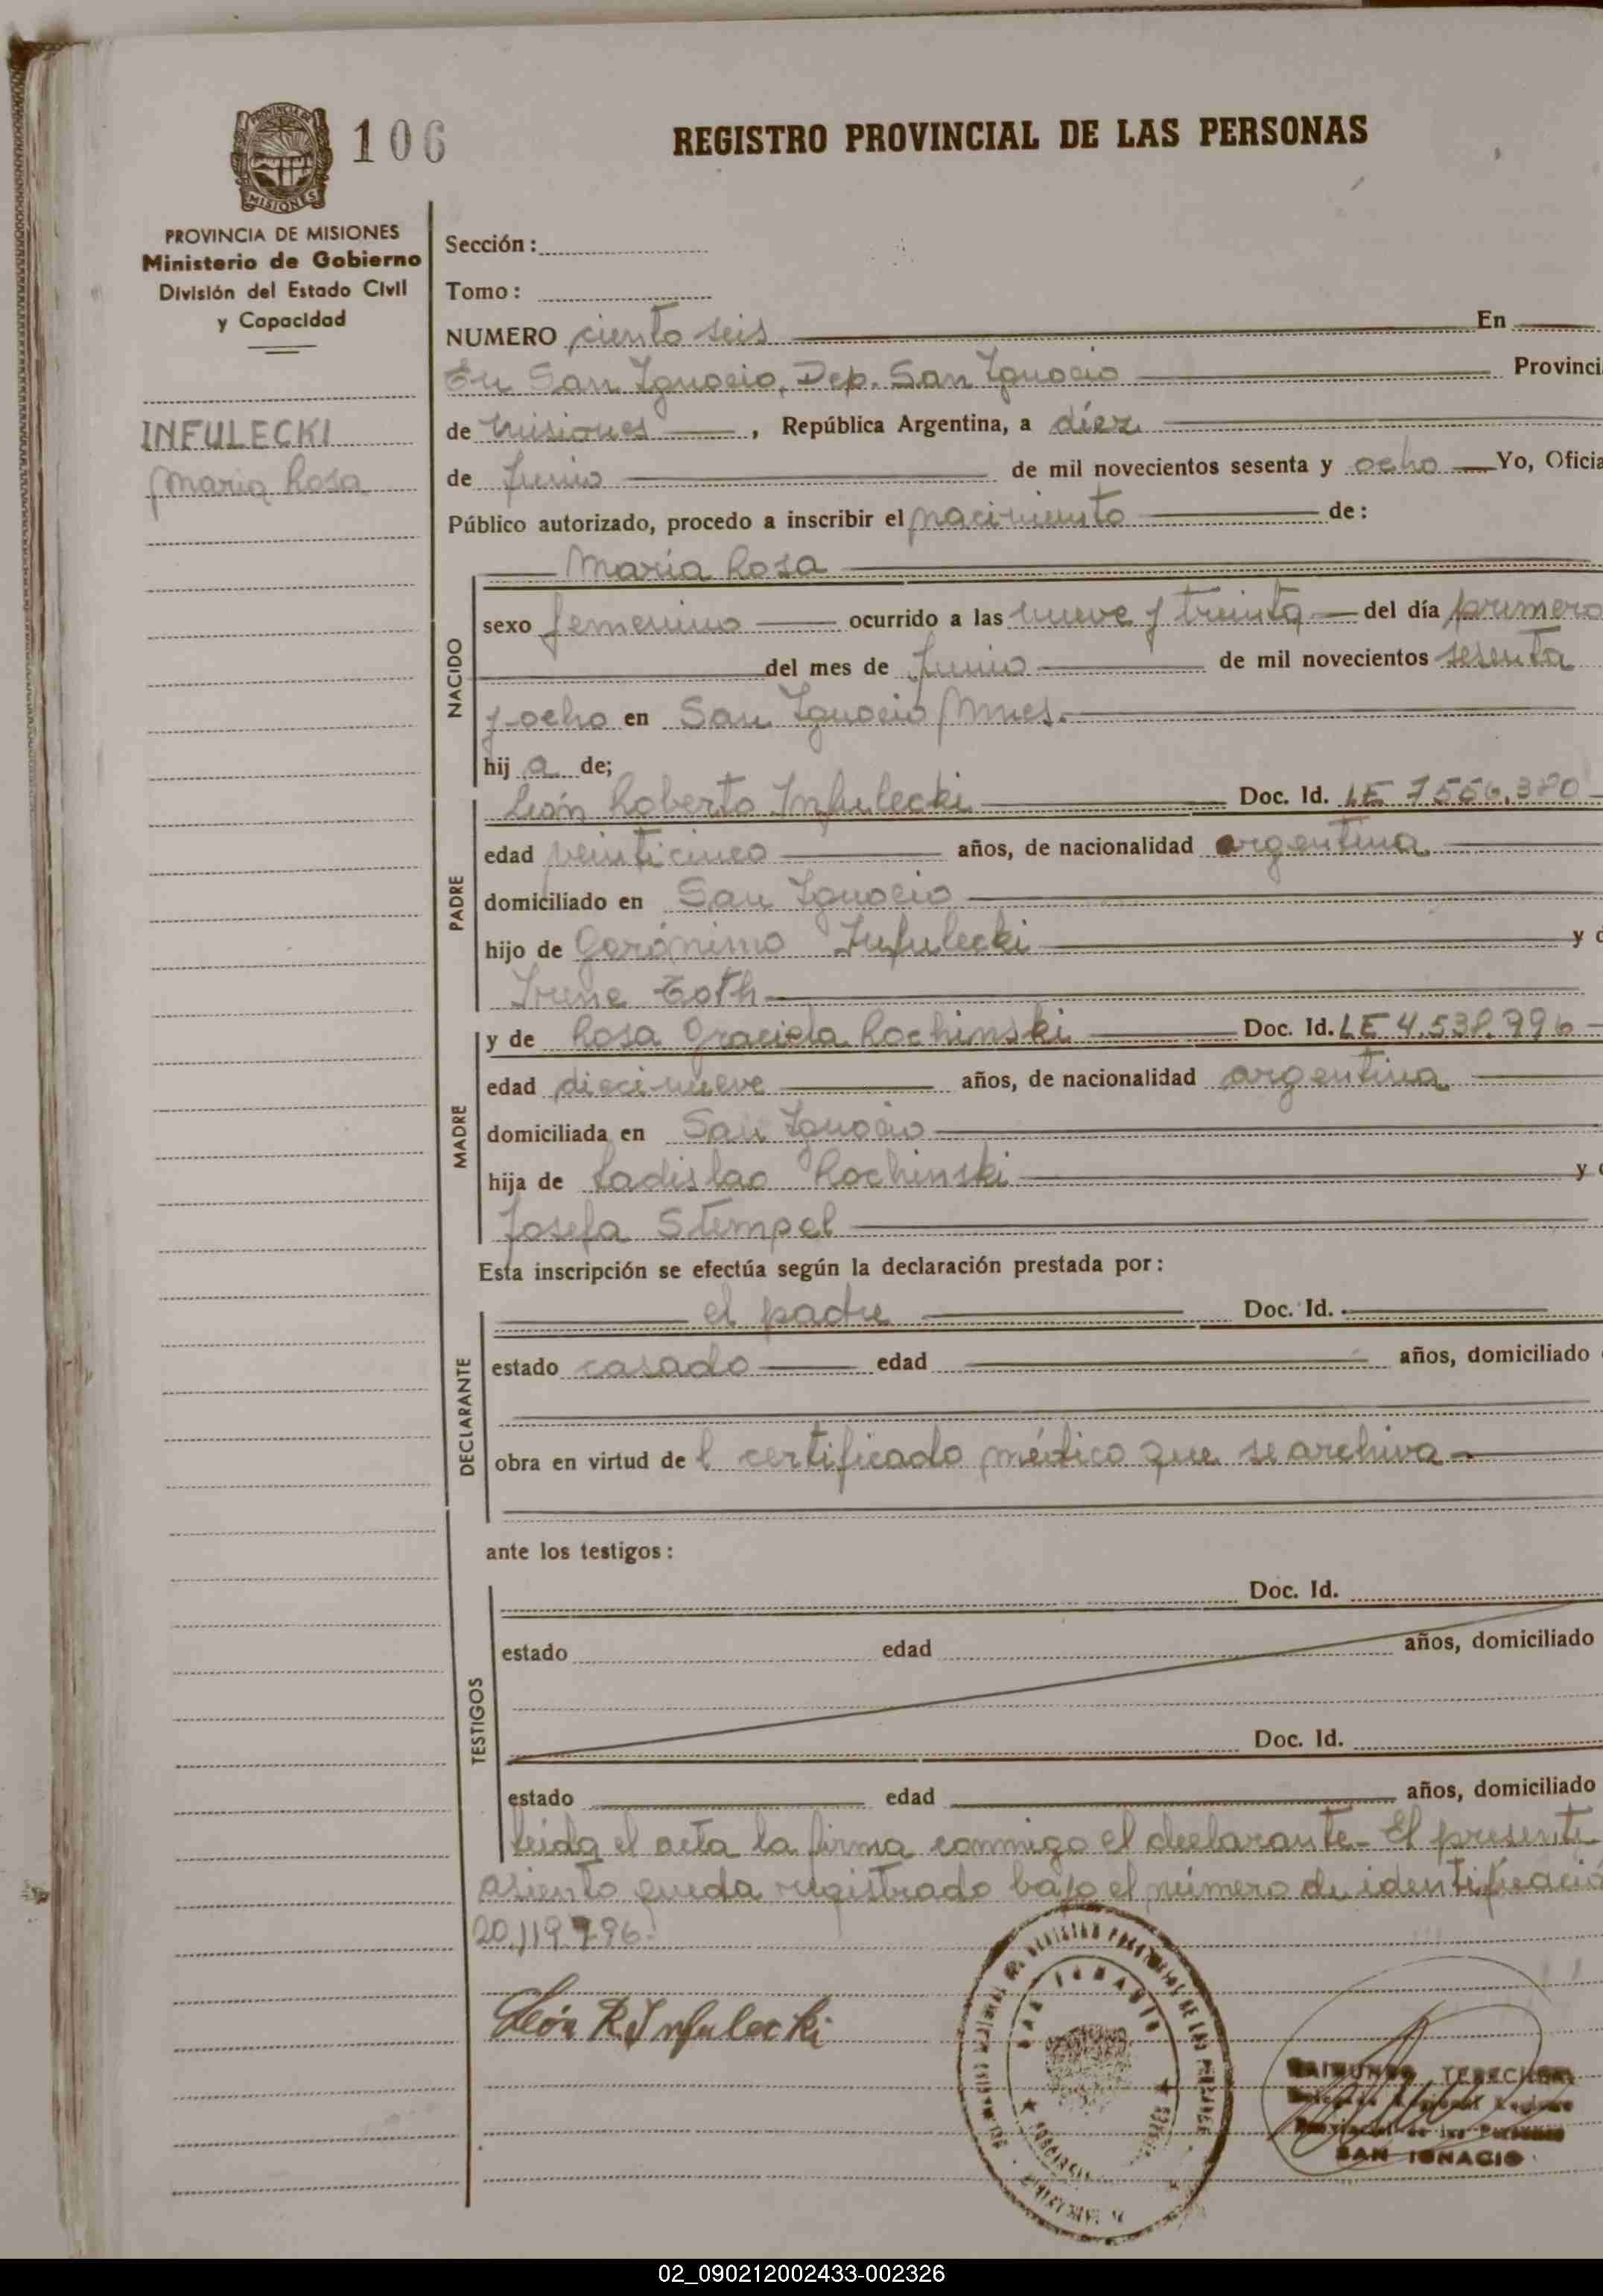 PROVINCIA DE
MISIONES
106
REGISTRO PROVINCIAL DE LAS PERSONAS
PROVINCIA DE MISIONES
Ministerio de Gobierno
División del Estado Civil
y Capacidad
INFULECKI
María Rosa
Sección:
Tomo:
NUMERO ciento seis En
En San Ignacio, Dep. San Ignacio Provinci
de Misiones, República Argentina, a diez
de Junio de mil novecientos sesenta y ocho Yo, Oficia
Público autorizado, procedo a inscribir el nacimiento de:
NACIDO
María Rosa
sexo femenino ocurrido a las nueve y treinta del día primero
del mes de Junio de mil novecientos sesenta
y ocho en San Ignacio Mnes.
hij a de;
PADRE
León Roberto Infulecki Doc. Id. LE 7.556.380
edad veinticinco años, de nacionalidad argentina
domiciliado en San Ignacio
hijo de Gerónimo Infulecki y
Irene Toth
MADRE
y de Rosa Graciela Rochinski Doc. Id. LE 4.538.796
edad diecinueve años, de nacionalidad argentina
domiciliada en San Ignacio
hija de Ladislao Rochinski y
Josefa Stempel
Esta inscripción se efectúa según la declaración prestada por:
DECLARANTE
el padre Doc. Id.
estado casado edad años, domiciliado
obra en virtud de l certificado médico que se archiva
ante los testigos:
TESTIGOS
Doc. Id.
estado edad años, domiciliado
Doc. Id.
estado edad años, domiciliado
leída el acta la firma conmigo el declarante- El presente
asiento queda registrado bajo el número de identificació
20.119.796.
León R. Infulecki
SAN IGNACIO
RAIMUNDO
Delegado Regional Registro
Provincial de las Personas
SAN IGNACIO
02_090212002433-002326